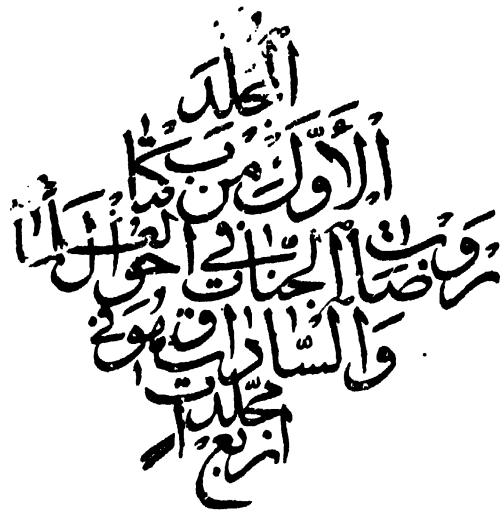 المجلد
الأوّل من كتاب
روضات الجنّات في احوال العلماء
والسّادات وهو في
مجلّدات
اربع